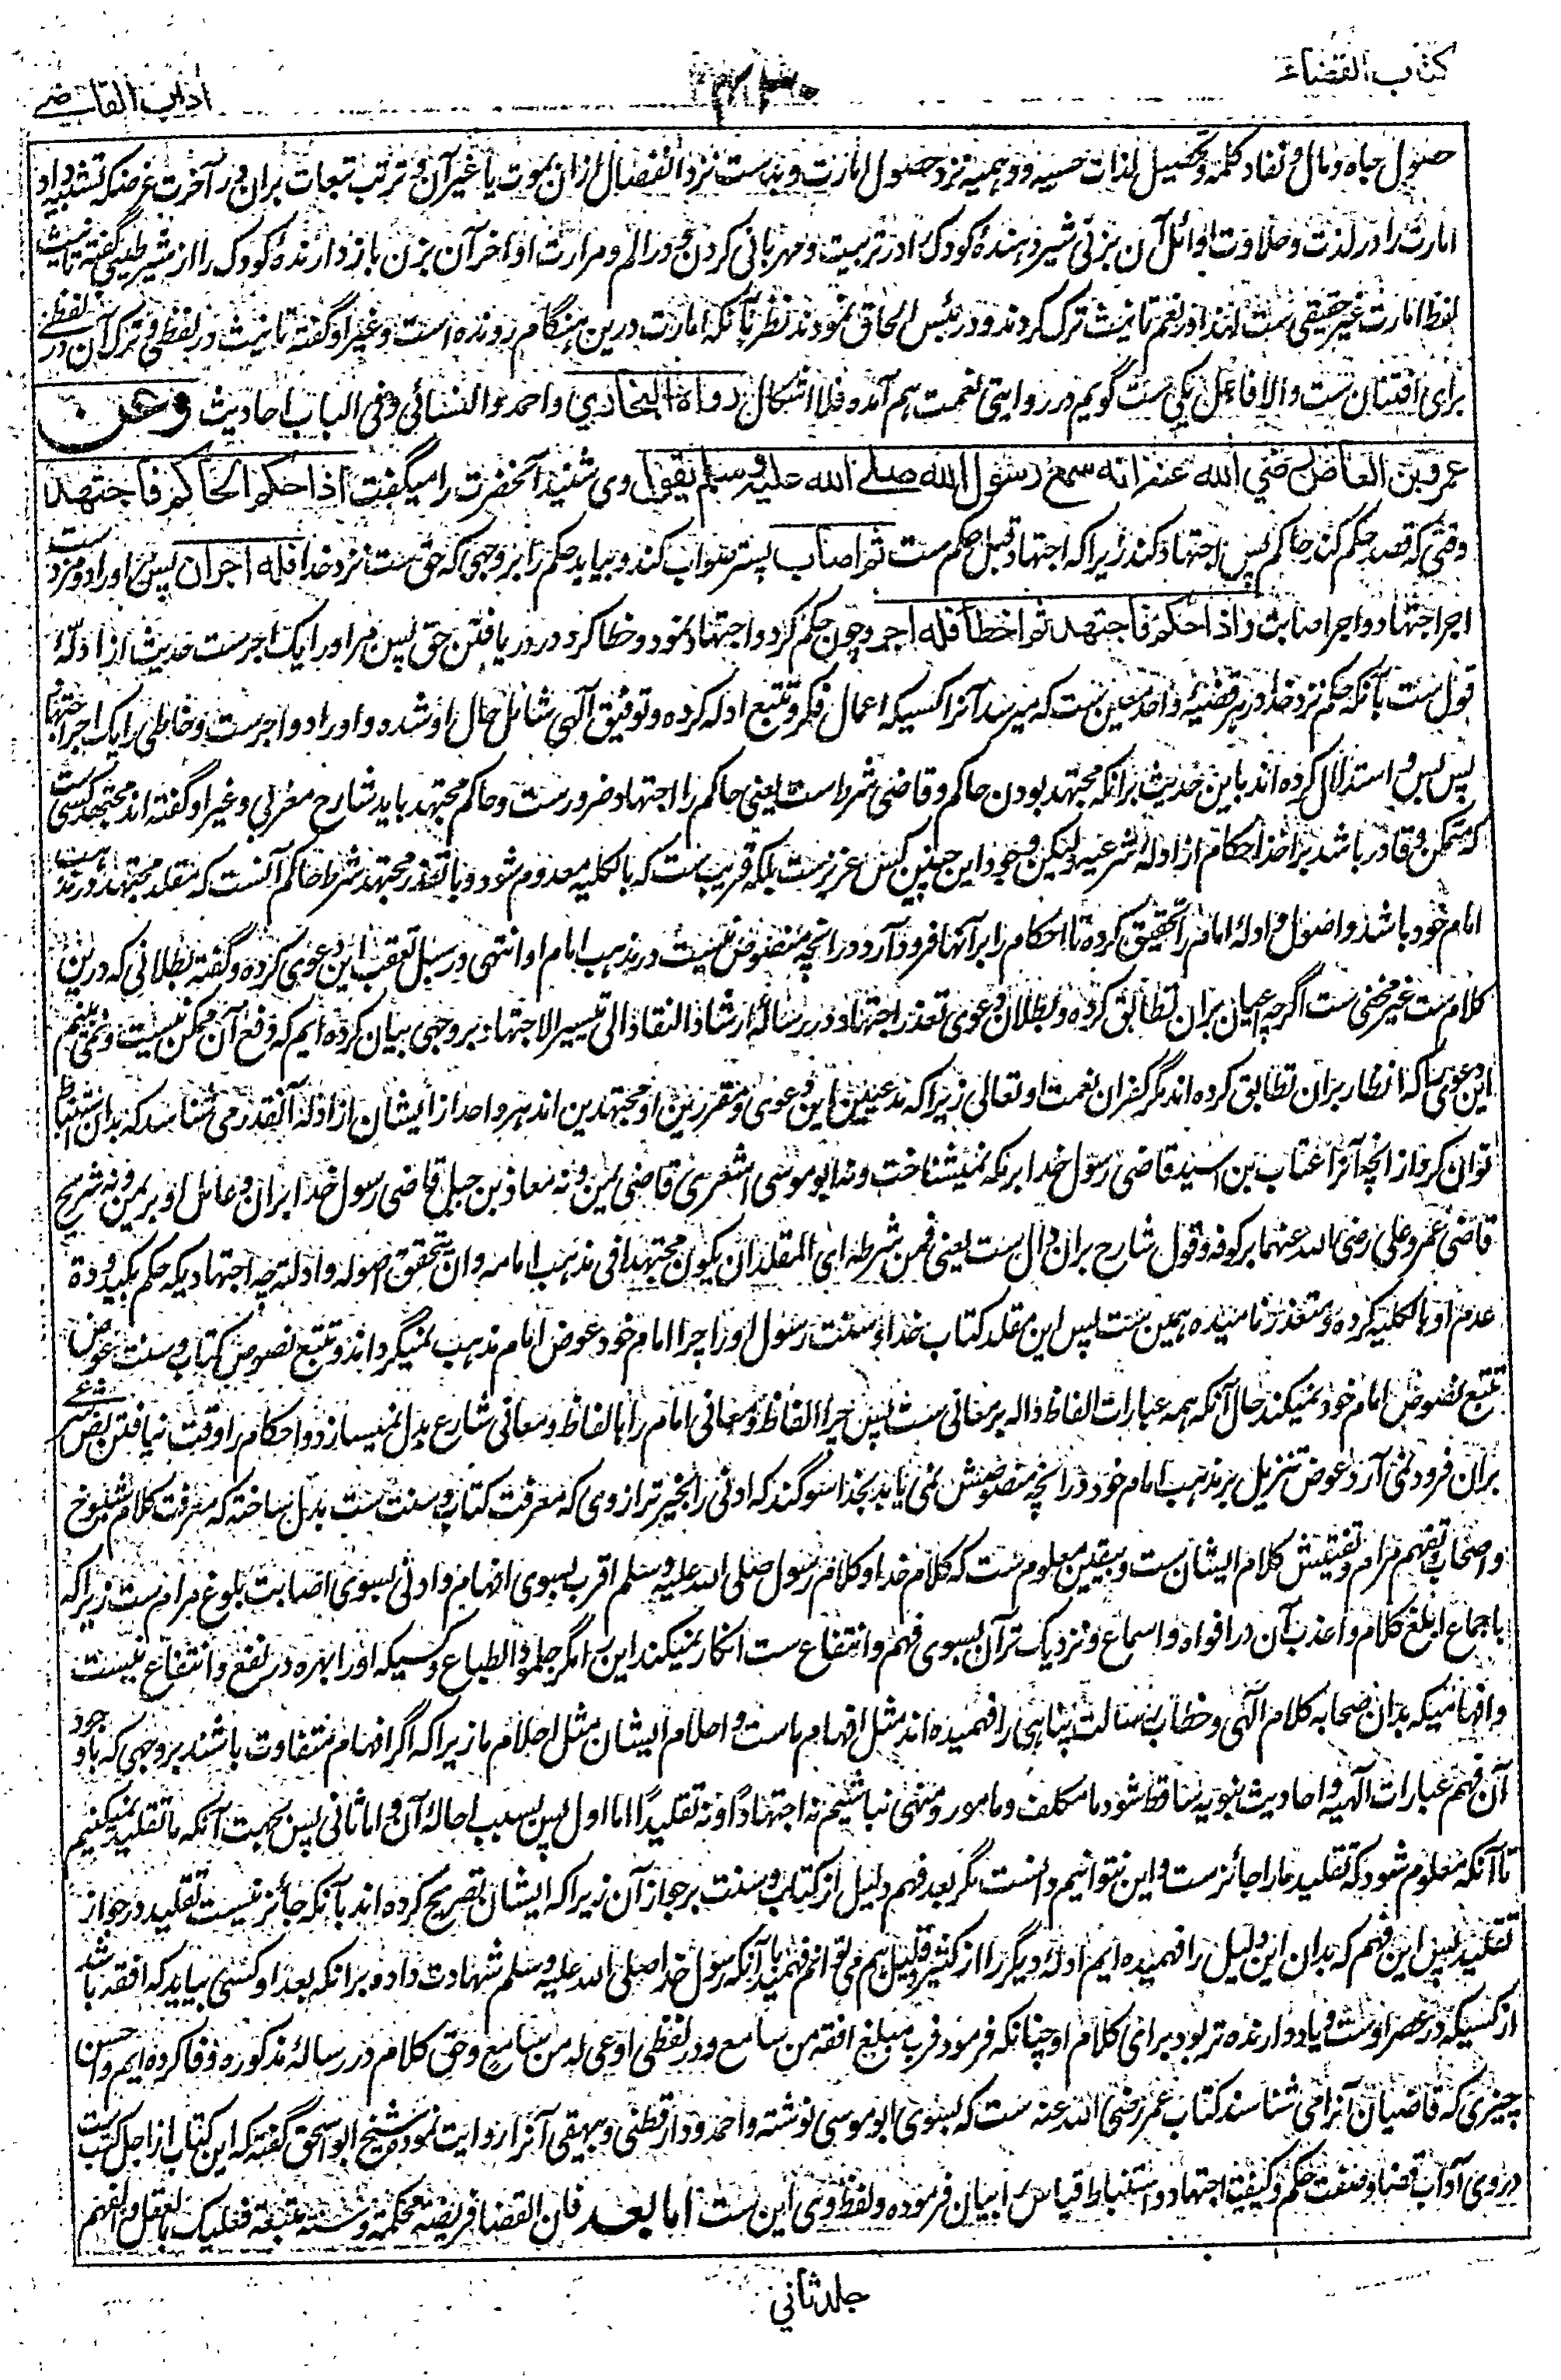 كتاب القضاء
آداب القاضي
حصول جاه ومال و نفاد كلمه وتحصيل لذات حسيه ووهميه نزد حصول امارت وبدست نزد انفصال ازان بموت يا غير آن وترتب تبعات بران در آخرت غرضكه تشبيه داد
امارت را در لذت وحلاوت اوائل آن بزنى شير دهنده كودك را در تربيت ومهربانى كردن و در الم و مرارت اواخر آن بزن باز دارنده كودك را از شير طيبى گفته تانيث
لفظ امارت غير حقيقى ست لهذا در نعم تانيث ترك كردند ودر بئس الحاق نمودند نظر بآنكه امارت درين هنگام رونده است وغير او گفته تانيث در لفظى وترك آن در لفظے
براى افتنان ست والا فاعل يكى ست گويم در روايتى نعمت هم آمده فلا اشكال رواه البخاري واحمد والنسائى وفى الباب احاديث وعن
عمرو بن العاص رضي الله عنه انه سمع رسول الله صلے الله عليه وسلم يقول وى شنيد آنحضرت را ميگفت اذا حكم الحاكم فاجتهد
وقتى كه قصد حكم كند حاكم پس اجتهاد كند زيرا كه اجتهاد قبل حكم ست ثم اصاب پستر صواب كند وبيابد حكم را بر وجهى كه حق ست نزد خدا فله اجران پس او را دو مزد ست
اجر اجتهاد و اجر اصابت واذا حكم فاجتهد ثم اخطأ فله اجر وچون حكم كرد واجتهاد نمود وخطا كرد در دريافتن حق پس مر او را يك اجر ست حديث از ادلهٔ
قول ست بآنكه حكم نزد خدا در هر قضيه واحد معين ست كه ميرسد آنرا كسيكه اعمال فكر وتتبع ادله كرده وتوفيق آلهى شامل حال او شده و او را دو اجر ست وخاطى را يك اجر اجتهاد
پس بس و استدلال كرده اند باين حديث برانكه مجتهد بودن حاكم وقاضى شرط است يعنى حاكم را اجتهاد ضرور ست وحاكم مجتهد بايد شارح مغربي وغير او گفته اند مجتهد كسى ست
كه متمكن و قادر باشد بر اخذ احكام از ادلهٔ شرعيه وليكن وجود اين چنين كس عزيز ست بلكه قريب ست كه بالكليه معدوم شود وبا تعذر مجتهد شرط حاكم آنست كه مقلد مجتهد در مذهب
امام خود باشد و اصول و ادلهٔ امام را تحقيق كرده تا احكام را بر آنها فرود آرد در انچه منصوص نيست در مذهب امام او انتهى در سبل تعقب اين دعوى كرده و گفته بطلانى كه درين
كلام ست غير مخفى ست اگرچه اعيان بران تطابق كرده و بطلان دعوى تعذر اجتهاد در رسالهٔ ارشاد النقاد الى تيسير الاجتهاد بر وجهى بيان كرده ايم كه دفع آن ممكن نيست و نمى بينيم
اين دعوى را كه انظار بران تطابق كرده اند مگر كفران نعمت او تعالى زيرا كه مدعيين اين دعوى و مقررين او مجتهدين اند هر واحد از ايشان از ادله آنقدر مى شناسد كه بدان استنباط
توان كرد از انچه آنرا عتاب بن اسيد قاضى رسول خدا بر مكه نميشناخت ونه ابو موسى اشعرى قاضى يمن ونه معاذ بن جبل قاضى رسول خدا بران و عامل او بر يمن ونه شريح
قاضى عمر و على رضى الله عنهما بر كوفه وقول شارح بران دال ست يعنى فمن شرطه اى المقلد ان يكون مجتهدا فى مذهب امامه وان يتحقق اصوله وادلته چه اجتهاديكه حكم بكيدودة
عدم او بالكليه كرده و متعذر ناميده همين ست پس اين مقلد كتاب خدا و سنت رسول او را چرا امام خود عوض امام مذهب نميگرداند و تتبع نصوص كتاب وسنت عوض
تتبع نصوص امام خود نميكند حال آنكه همه عبارات الفاظ داله بر معانى ست پس چرا الفاظ ومعانى امام را بالفاظ و معانى شارع بدل نميسازد و احكام را وقت نيافتن نص شرعے
بران فرود نمى آرد عوض تنزيل بر مذهب امام خود در انچه منصوصش نمى يابد بخدا سوگند كه ادنى را بخير تر از وى كه معرفت كتاب وسنت ست بدل ساخته كه معرفت كلام شيوخ
و اصحاب و تفهم مرام و تفتيش كلام ايشان ست و بيقين معلوم ست كه كلام خدا و كلام رسول صلى الله عليه وسلم اقرب بسوى افهام و ادنى بسوى اصابت بلوغ مرام ست زيرا كه
باجماع ابلغ كلام و اعذب آن در افواه و اسماع و نزديك تر آن بسوى فهم و انتفاع ست انكار نميكند اين را مگر جلمود الطباع وكسيكه او را بهره در نفع و انتفاع نيست
و افهاميكه بدان صحابه كلام آلهى و خطاب رسالت پناهى را فهميده اند مثل افهام ماست و احلام ايشان مثل احلام ما زيرا كه اگر افهام متفاوت باشند بر وجهى كه با وجود
آن فهم عبارات آلهيه و احاديث نبويه ساقط شود ما مكلف و مامور و منهى نباشيم نه اجتهادًا و نه تقليدًا اما اول پس بسبب احالهٔ آن و اما ثانى پس بجهت آنكه ما تقليد نميكنيم
تا آنكه معلوم شود كه تقليد ما را جائز ست و اين نتوانيم دانست مگر بعد فهم دليل از كتاب وسنت بر جواز آن زيرا كه ايشان تصريح كرده اند بآنكه جائز نيست تقليد در جواز
تقليد پس اين فهم كه بدان اين دليل را فهميده ايم ادلهٔ ديگر را از كثير و قليل هم مى توانم فهميد با آنكه رسول خدا صلى الله عليه وسلم شهادت داده برانكه بعد او كسى بيايد كه افقه باشد
از كسيكه در عصر اوست و ياد دارنده تر بود براى كلام او چنانكه فرمود فرب مبلغ افقه من سامع و در لفظى اوعى له من سامع و حق كلام در رسالهٔ مذكوره وفا كرده ايم و احسن
چيزى كه قاضيان آنرا مى شناسند كتاب عمر رضى الله عنه ست كه بسوى ابو موسى نوشته و احمد و دارقطنى و بيهقى آنرا روايت نموده شيخ ابو اسحق گفته كه اين كتاب از اجل كتب ست
در وى آداب قضا و صفت حكم و كيفيت اجتهاد و استنباط قياس را بيان فرموده و لفظ وى اين ست اما بعد فان القضا فريضة محكمة وسنة متبعة فعليك بالعقل والفهم
جلد ثاني